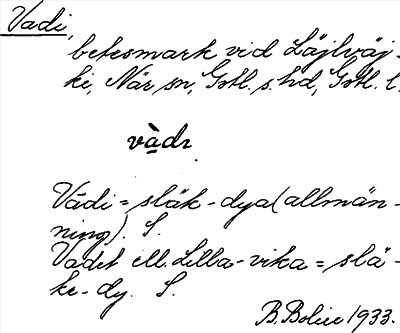 Vadi,
betesmark vid Läjlväj-
ki, När sn, Gotl. s. hd, Gotl. l.
vàdı
Vädi = släk-dya (allmän-
ning). S.
Vadet ell. Lilla-vika = slä-
ke-dy. S.
B. Bolin 1933.